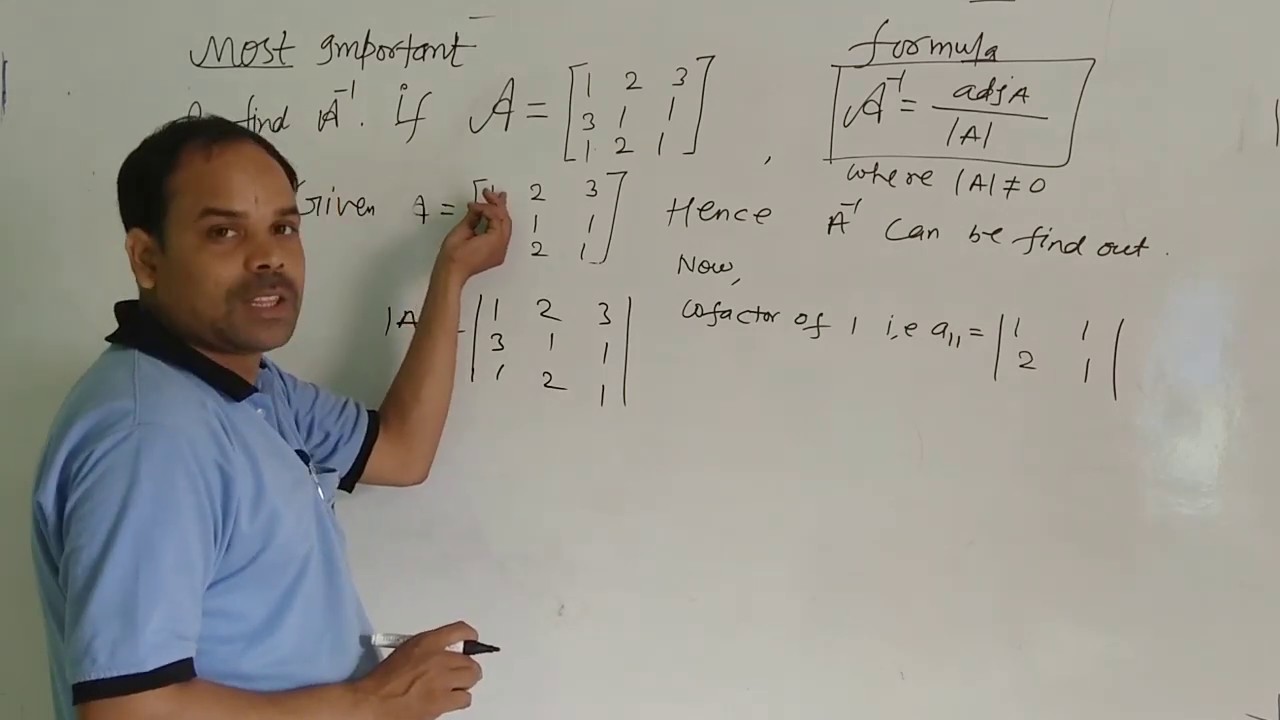 Most important
find A⁻¹. if A = [1 2 3
3 1 1
1 2 1]
,
formula
A⁻¹ = adjA
|A|
where |A| ≠ 0
Given A = [ 2 3
1 1
2 1]
|A
|1 2 3
3 1 1
1 2 1|
Hence A⁻¹ can be find out.
Now,
cofactor of 1 i,e a₁₁ = |1 1
2 1|